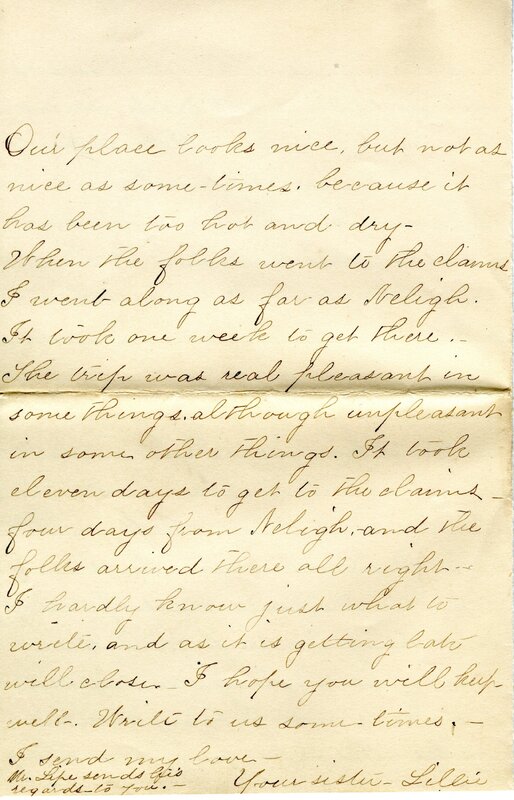 Our place looks nice, but not as
nice as some-times. because it
has been too hot and dry-
When the folks went to the claims
I went along as far as Neligh.
It took one week to get there.-
The trip was real pleasant in
some things. although unpleasant
in some other things. It took
eleven days to get to the claims-
four days from Neligh, and the
folks arrived there all right--
I hardly know just what to
write, and as it is getting late
will close- I hope you will keep
well-. Write to us some-times.-
I send my love-
Mr. Lipe sends his
regards to you.-
Your sister- Lillie